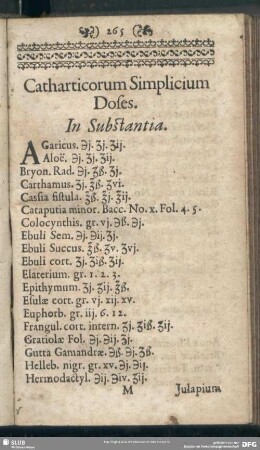 265
Catharticorum Simplicium
Doses.
In Substantia.
AGaricus. ℈j. ʒj. ʒij.
Aloë. ℈j. ʒj. ʒij.
Bryon. Rad. ℈j. ʒß. ʒj.
Carthamus. ʒj. ℥ß. ʒvi.
Cassia fistula. ℥ß. ℥j. ℥ij.
Cataputia minor. Bacc. No. x. Fol. 4. 5.
Colocynthis. gr. vj. ℈ß. ℈j.
Ebuli Sem. ℈j. ℈ij. ʒj.
Ebuli Succus. ℥ß. ʒv. ʒvj.
Ebuli cort. ʒj. ʒiß. ʒij.
Elaterium. gr. 1. 2. 3.
Epithymum. ʒj. ʒij. ℥ß.
Esulæ cort. gr. vj. xij. xv.
Euphorb. gr. iij. 6. 12.
Frangul. cort. intern. ʒj. ʒiß. ʒij.
Gratiolæ Fol. ℈j. ℈ij. ʒj.
Gutta Gamandræ. ℈ß. ℈j. ʒß.
Helleb. nigr. gr. xv. ℈j. ℈ij.
Hermodactyl. ℈ij. ℈iv. ʒij.
M Julapium
SLUB
DFG